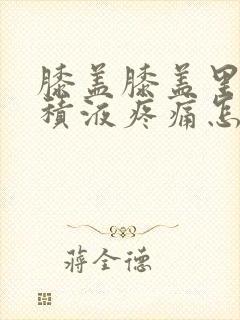 膝盖膝盖里
積液疼痛怎
蒋全德